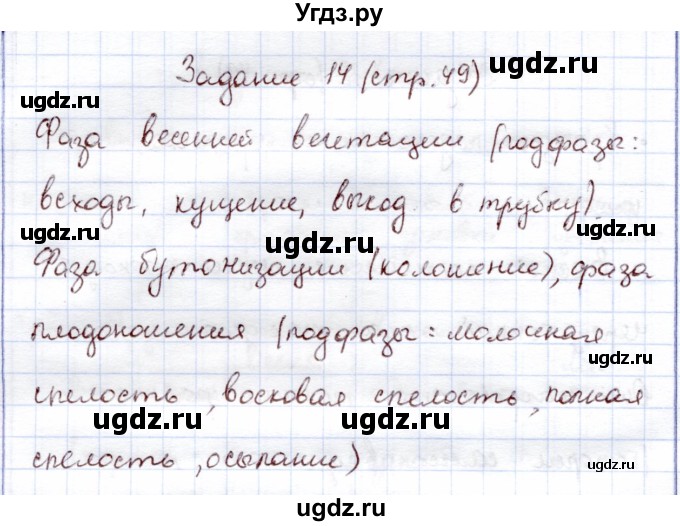 Угдз.ру
Задание 14 (стр. 49)
ugdz.ru
ugdz.ru
ugdz.ru
Фаза весенней вегетации (подфазы:
ugdz.ru
всходы, кущение, выход в трубку).
ugdz.ru
ugdz.ru
Фаза бутонизации (колошение), фаза
плодоношения (подфазы: молочная
ugdz.ru
спелость, восковая спелость, полная
ugdz.ru
ugdz.ru
спелость, осыпание)
ugdz.ru
ugdz.ru